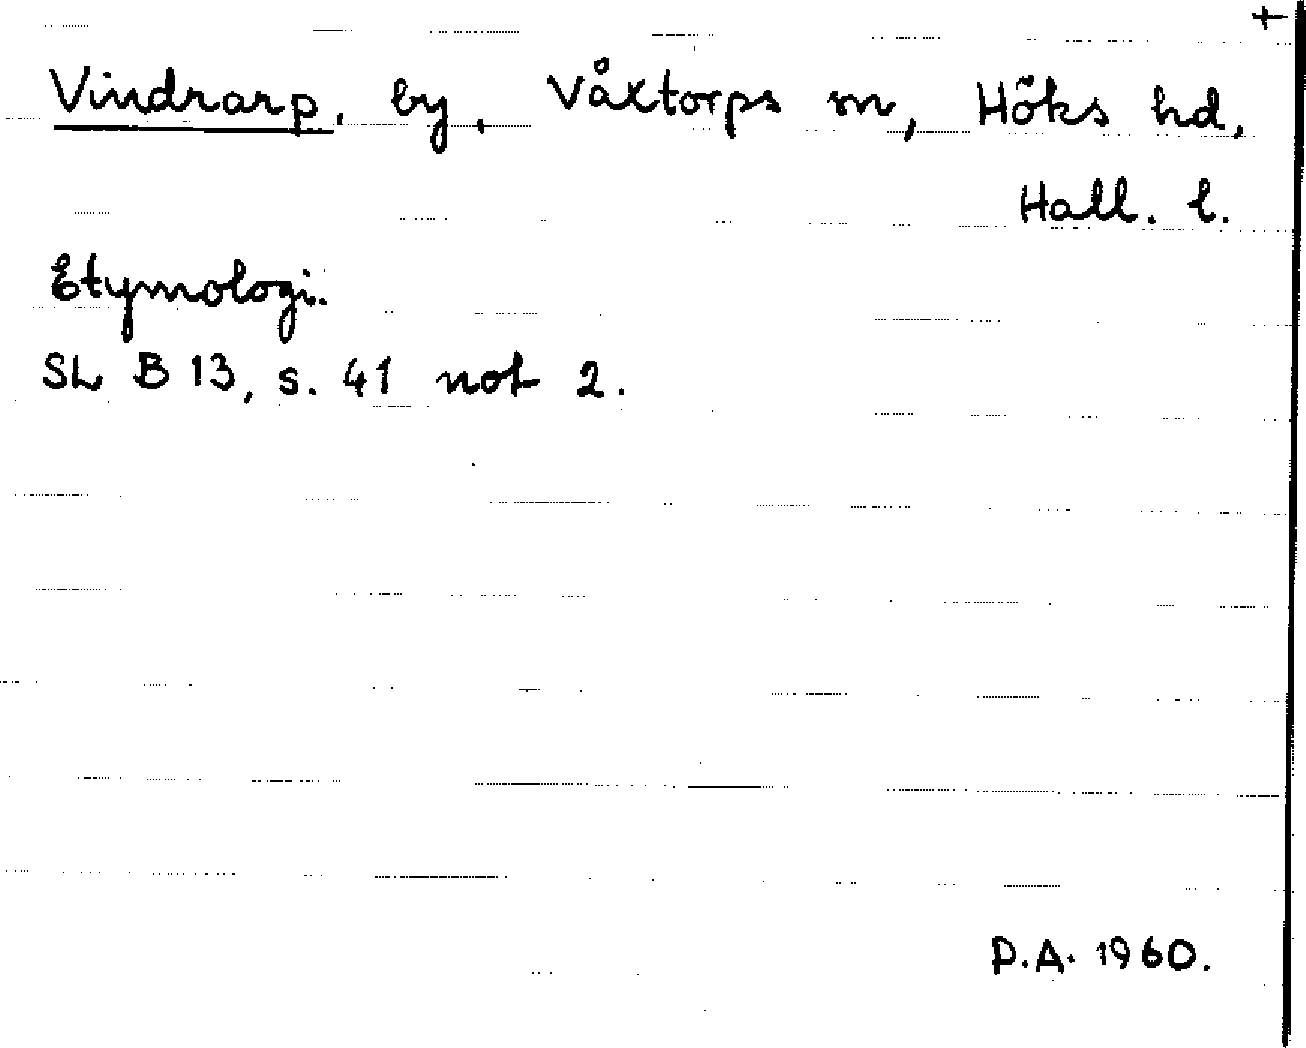 +
Vindrarp, by, Våxtorps sn, Höks hd,
Hall. l.
Etymologi.
SL B 13, s. 41 not 2.
P.A. 1960.